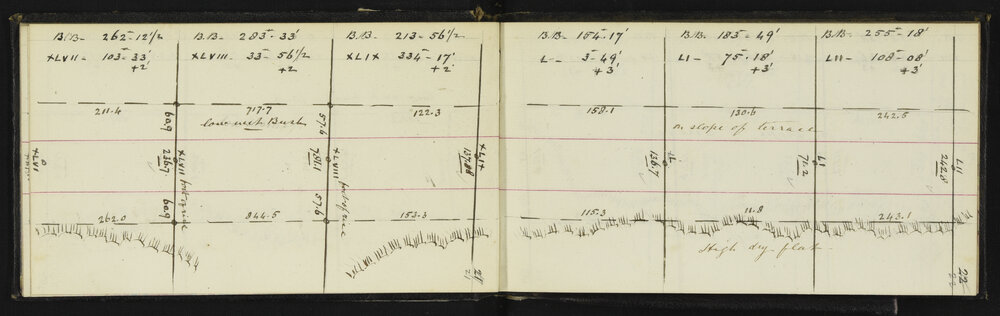 B.B- 262-12 1/2 B.B- 283-33' B.B- 213-56 1/2
XLVII- 103-33' XLVIII- 33-56 1/2 XLIX 334-17'
+2' +2 +2'
211.4 717.7 122.3
low wet Bush
609 57.6
XLVII 0 XLVIII 236.7 XLVIII 791.1 XLIX 137.88
609 57.6
262.0 844.5 153.3
21
21
B.B- 154-17' B.B- 183-49' B.B- 255-18'
L- 3-49' LI- 75-18' LII- 108-08'
+3' +3' +3'
158.1 130.6 242.5
on slope of terrace
L 136.7 LI 71.2 LII 242.8
115.3 11.8 243.1
High dry flat
22
22